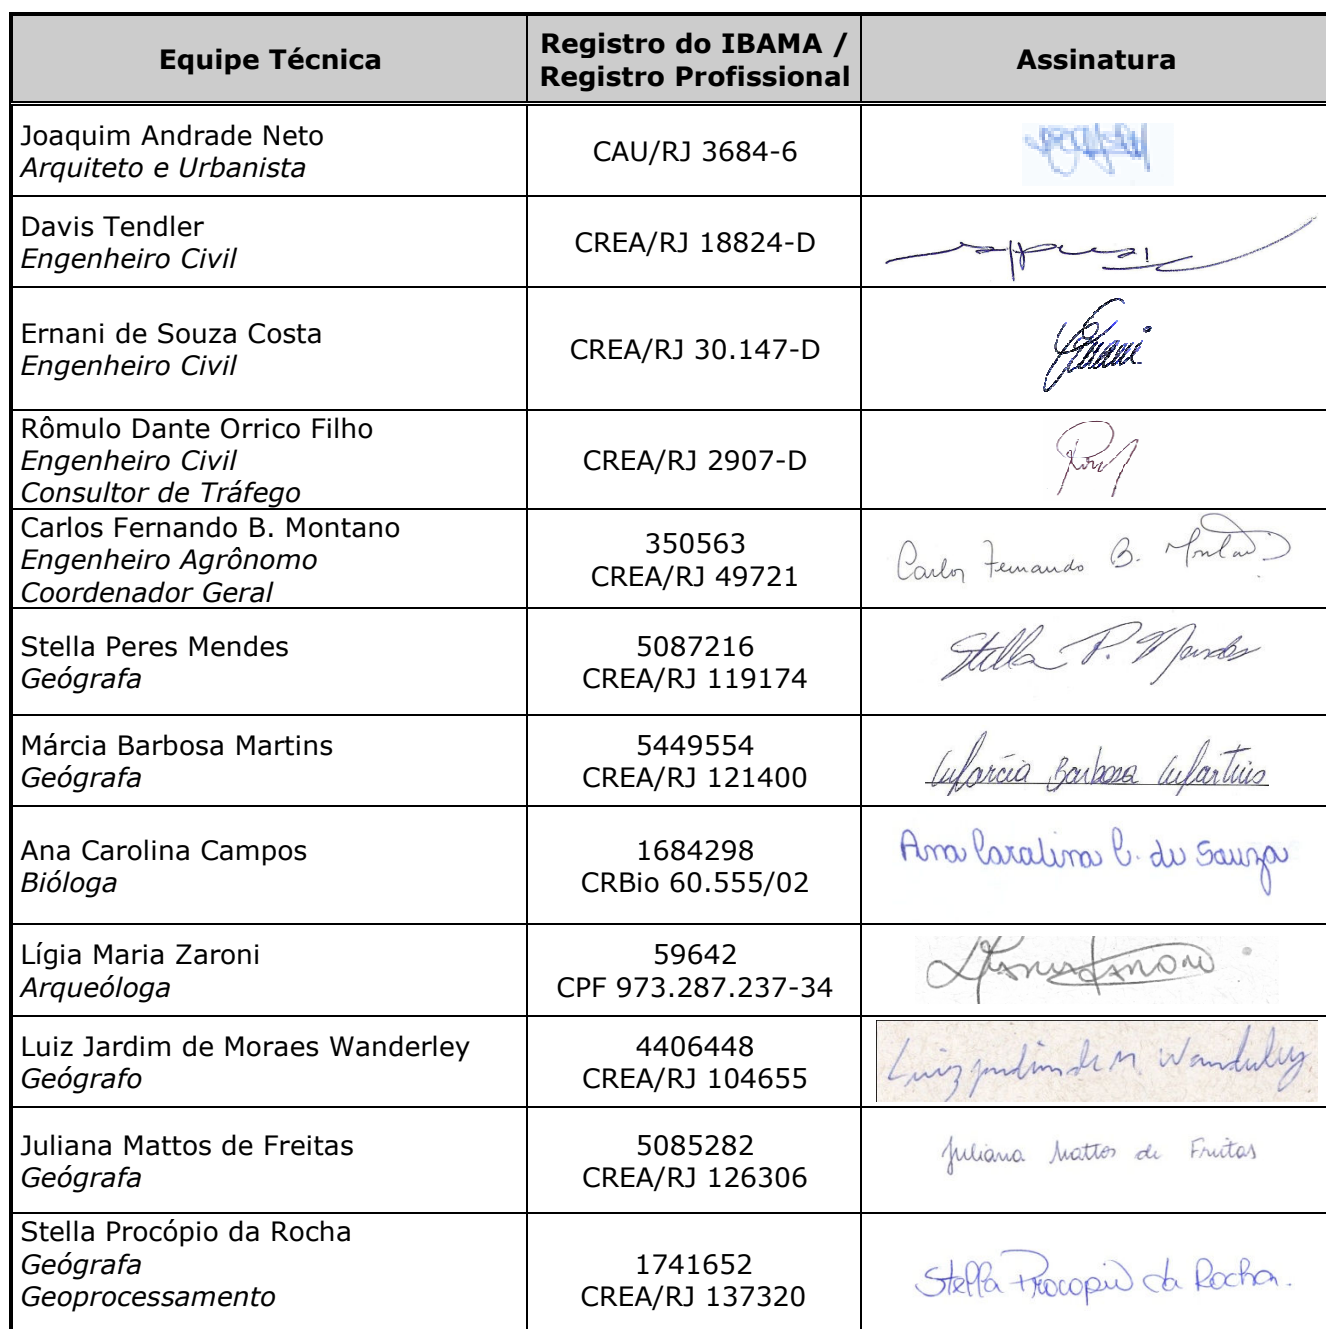 Equipe Técnica
Registro do IBAMA /
Registro Profissional
Assinatura
Joaquim Andrade Neto
Arquiteto e Urbanista
CAU/RJ 3684-6
Davis Tendler
Engenheiro Civil
CREA/RJ 18824-D
Ernani de Souza Costa
Engenheiro Civil
CREA/RJ 30.147-D
Ernani
Rômulo Dante Orrico Filho
Engenheiro Civil
Consultor de Tráfego
CREA/RJ 2907-D
Carlos Fernando B. Montano
Engenheiro Agrônomo
Coordenador Geral
350563
CREA/RJ 49721
Carlos Fernando B. Montano
Stella Peres Mendes
Geógrafa
5087216
CREA/RJ 119174
Stella P. Mendes
Márcia Barbosa Martins
Geógrafa
5449554
CREA/RJ 121400
Márcia Barbosa Martins
Ana Carolina Campos
Bióloga
1684298
CRBio 60.555/02
Ana Carolina C. de Souza
Lígia Maria Zaroni
Arqueóloga
59642
CPF 973.287.237-34
Luiz Jardim de Moraes Wanderley
Geógrafo
4406448
CREA/RJ 104655
Luiz Jardim de M. Wanderley
Juliana Mattos de Freitas
Geógrafa
5085282
CREA/RJ 126306
Juliana Mattos de Freitas
Stella Procópio da Rocha
Geógrafa
Geoprocessamento
1741652
CREA/RJ 137320
Stella Procopio da Rocha.